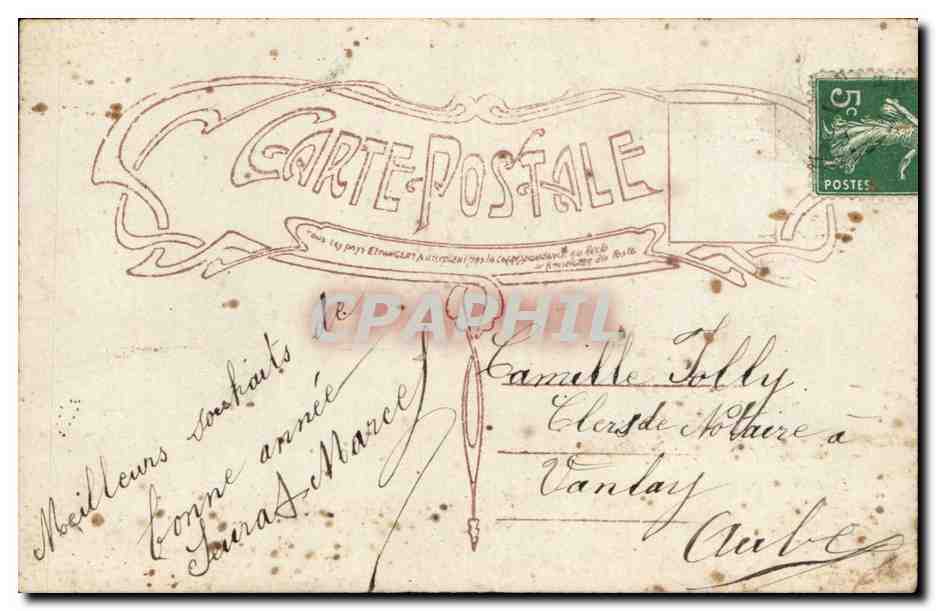 CARTE POSTALE
Tous les pays Etrangers n'acceptent pas la Correspondance au Recto
CPAPHIL
5c
POSTES
Meilleurs souhaits de
bonne année
Marcel
Camille Jolly
Clerc de Notaire à
Vanlay
Aube